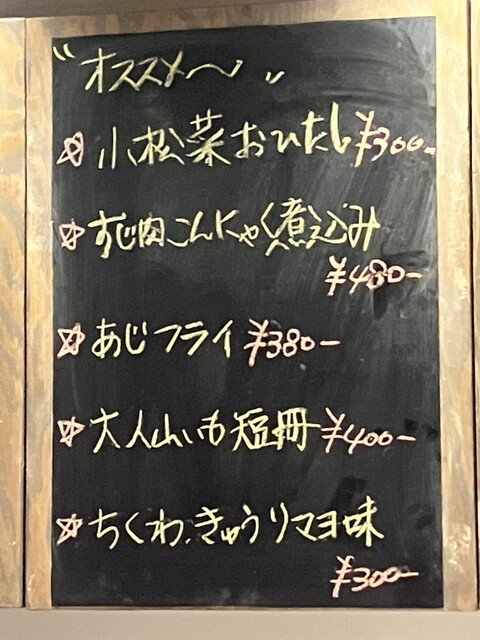 "オススメ〜"
☆小松菜おひたし¥300-
☆すじ肉こんにゃく煮込み
¥480-
☆あじフライ¥380-
☆大人山いも短冊¥400-
☆ちくわ.きゅうりマヨ味
¥300-